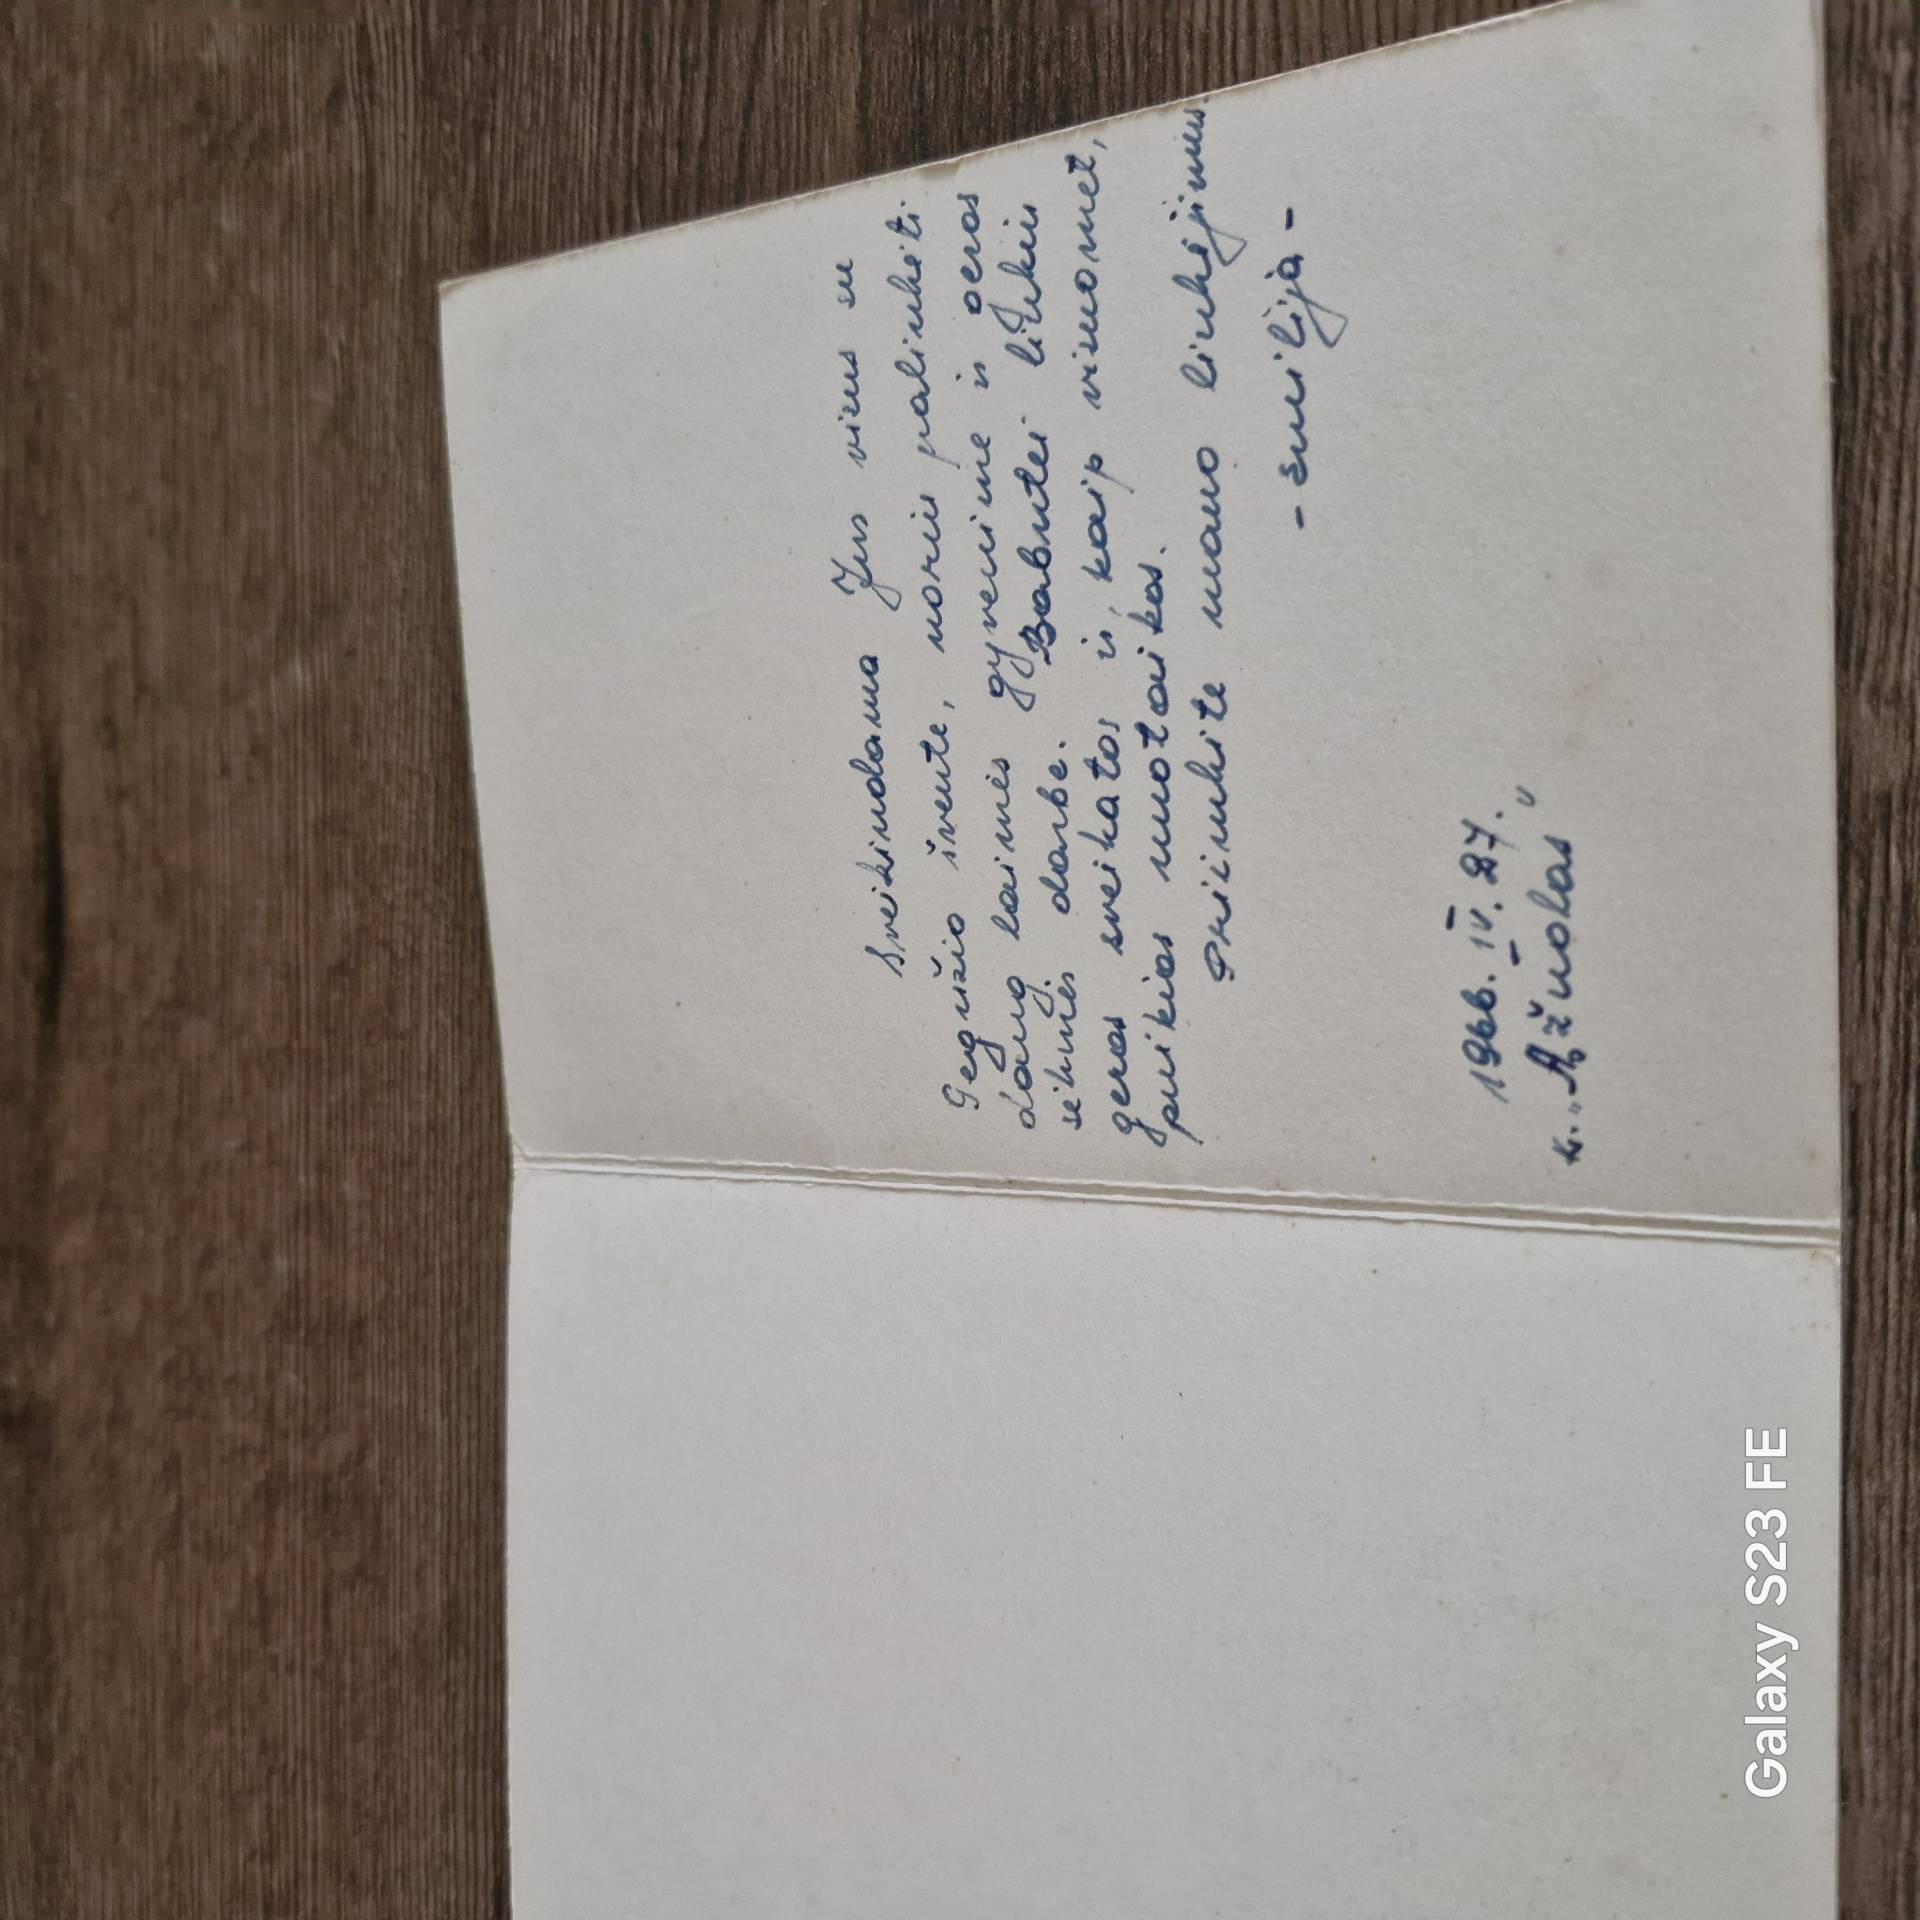 Sveikindama Jus visus su
Gegužio švente, noriu palinkėti
daug laimės gyvenime ir geros
sėkmės darbe. Babutei linkiu
geros sveikatos ir, kaip visuomet,
puikios nuotaikos.
Priimkite mano linkėjimus.
- Emilija -
1966. IV. 27.
k. „Ąžuolas"
Galaxy S23 FE